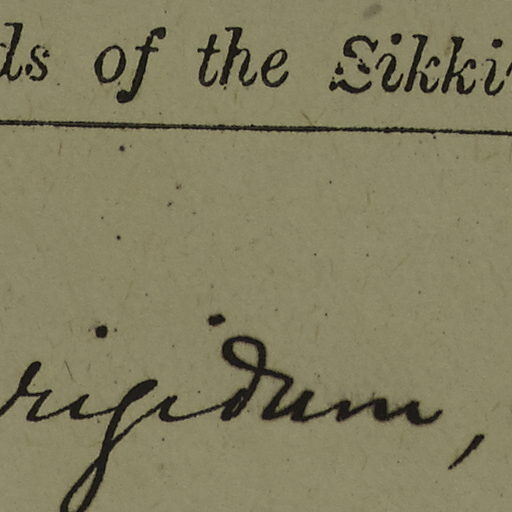 ds of the Sikki
rigidum,